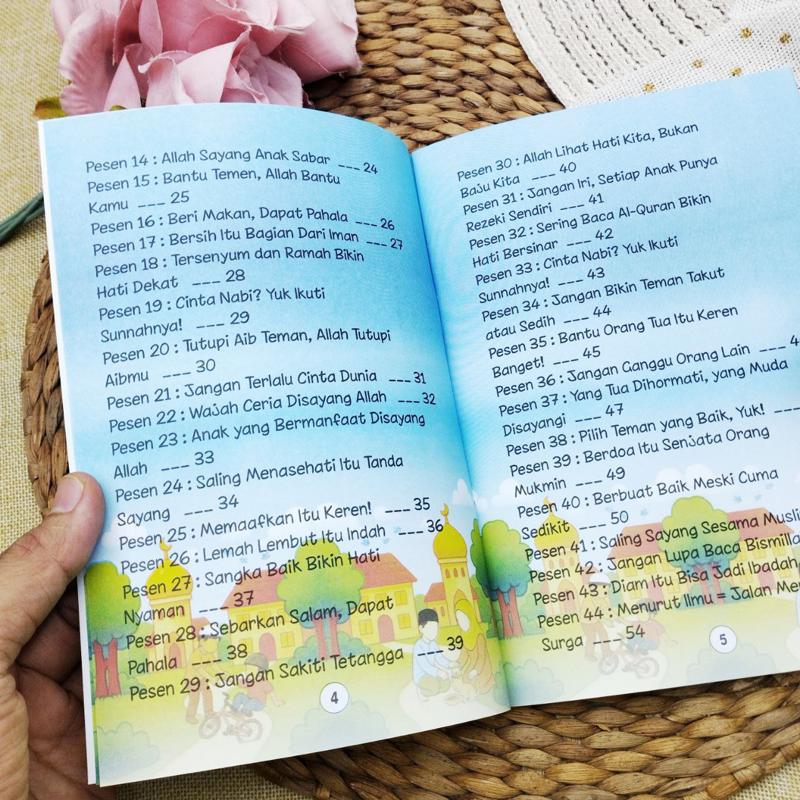 Pesen 14 : Allah Sayang Anak Sabar ___ 24
Pesen 15 : Bantu Temen, Allah Bantu
Kamu ___ 25
Pesen 16 : Beri Makan, Dapat Pahala ___ 26
Pesen 17 : Bersih Itu Bagian Dari Iman ___ 27
Pesen 18 : Tersenyum dan Ramah Bikin
Hati Dekat ___ 28
Pesen 19 : Cinta Nabi? Yuk Ikuti
Sunnahnya! ___ 29
Pesen 20 : Tutupi Aib Teman, Allah Tutupi
Aibmu ___ 30
Pesen 21 : Jangan Terlalu Cinta Dunia ___ 31
Pesen 22 : Wajah Ceria Disayang Allah ___ 32
Pesen 23 : Anak yang Bermanfaat Disayang
Allah ___ 33
Pesen 24 : Saling Menasehati Itu Tanda
Sayang ___ 34
Pesen 25 : Memaafkan Itu Keren! ___ 35
Pesen 26 : Lemah Lembut Itu Indah ___ 36
Pesen 27 : Sangka Baik Bikin Hati
Nyaman ___ 37
Pesen 28 : Sebarkan Salam, Dapat
Pahala ___ 38
Pesen 29 : Jangan Sakiti Tetangga ___ 39
4
Pesen 30 : Allah Lihat Hati Kita, Bukan
Baju Kita ___ 40
Pesen 31 : Jangan Iri, Setiap Anak Punya
Rezeki Sendiri ___ 41
Pesen 32 : Sering Baca Al-Quran Bikin
Hati Bersinar ___ 42
Pesen 33 : Cinta Nabi? Yuk Ikuti
Sunnahnya! ___ 43
Pesen 34 : Jangan Bikin Teman Takut
atau Sedih ___ 44
Pesen 35 : Bantu Orang Tua Itu Keren
Banget! ___ 45
Pesen 36 : Jangan Ganggu Orang Lain ___ 4
Pesen 37 : Yang Tua Dihormati, yang Muda
Disayangi ___ 47
Pesen 38 : Pilih Teman yang Baik, Yuk! ___
Pesen 39 : Berdoa Itu Senjata Orang
Mukmin ___ 49
Pesen 40 : Berbuat Baik Meski Cuma
Sedikit ___ 50
Pesen 41 : Saling Sayang Sesama Musli
Pesen 42 : Jangan Lupa Baca Bismilla
Pesen 43 : Diam Itu Bisa Jadi Ibadah
Pesen 44 : Menurut Ilmu = Jalan Me
Surga ___ 54
5